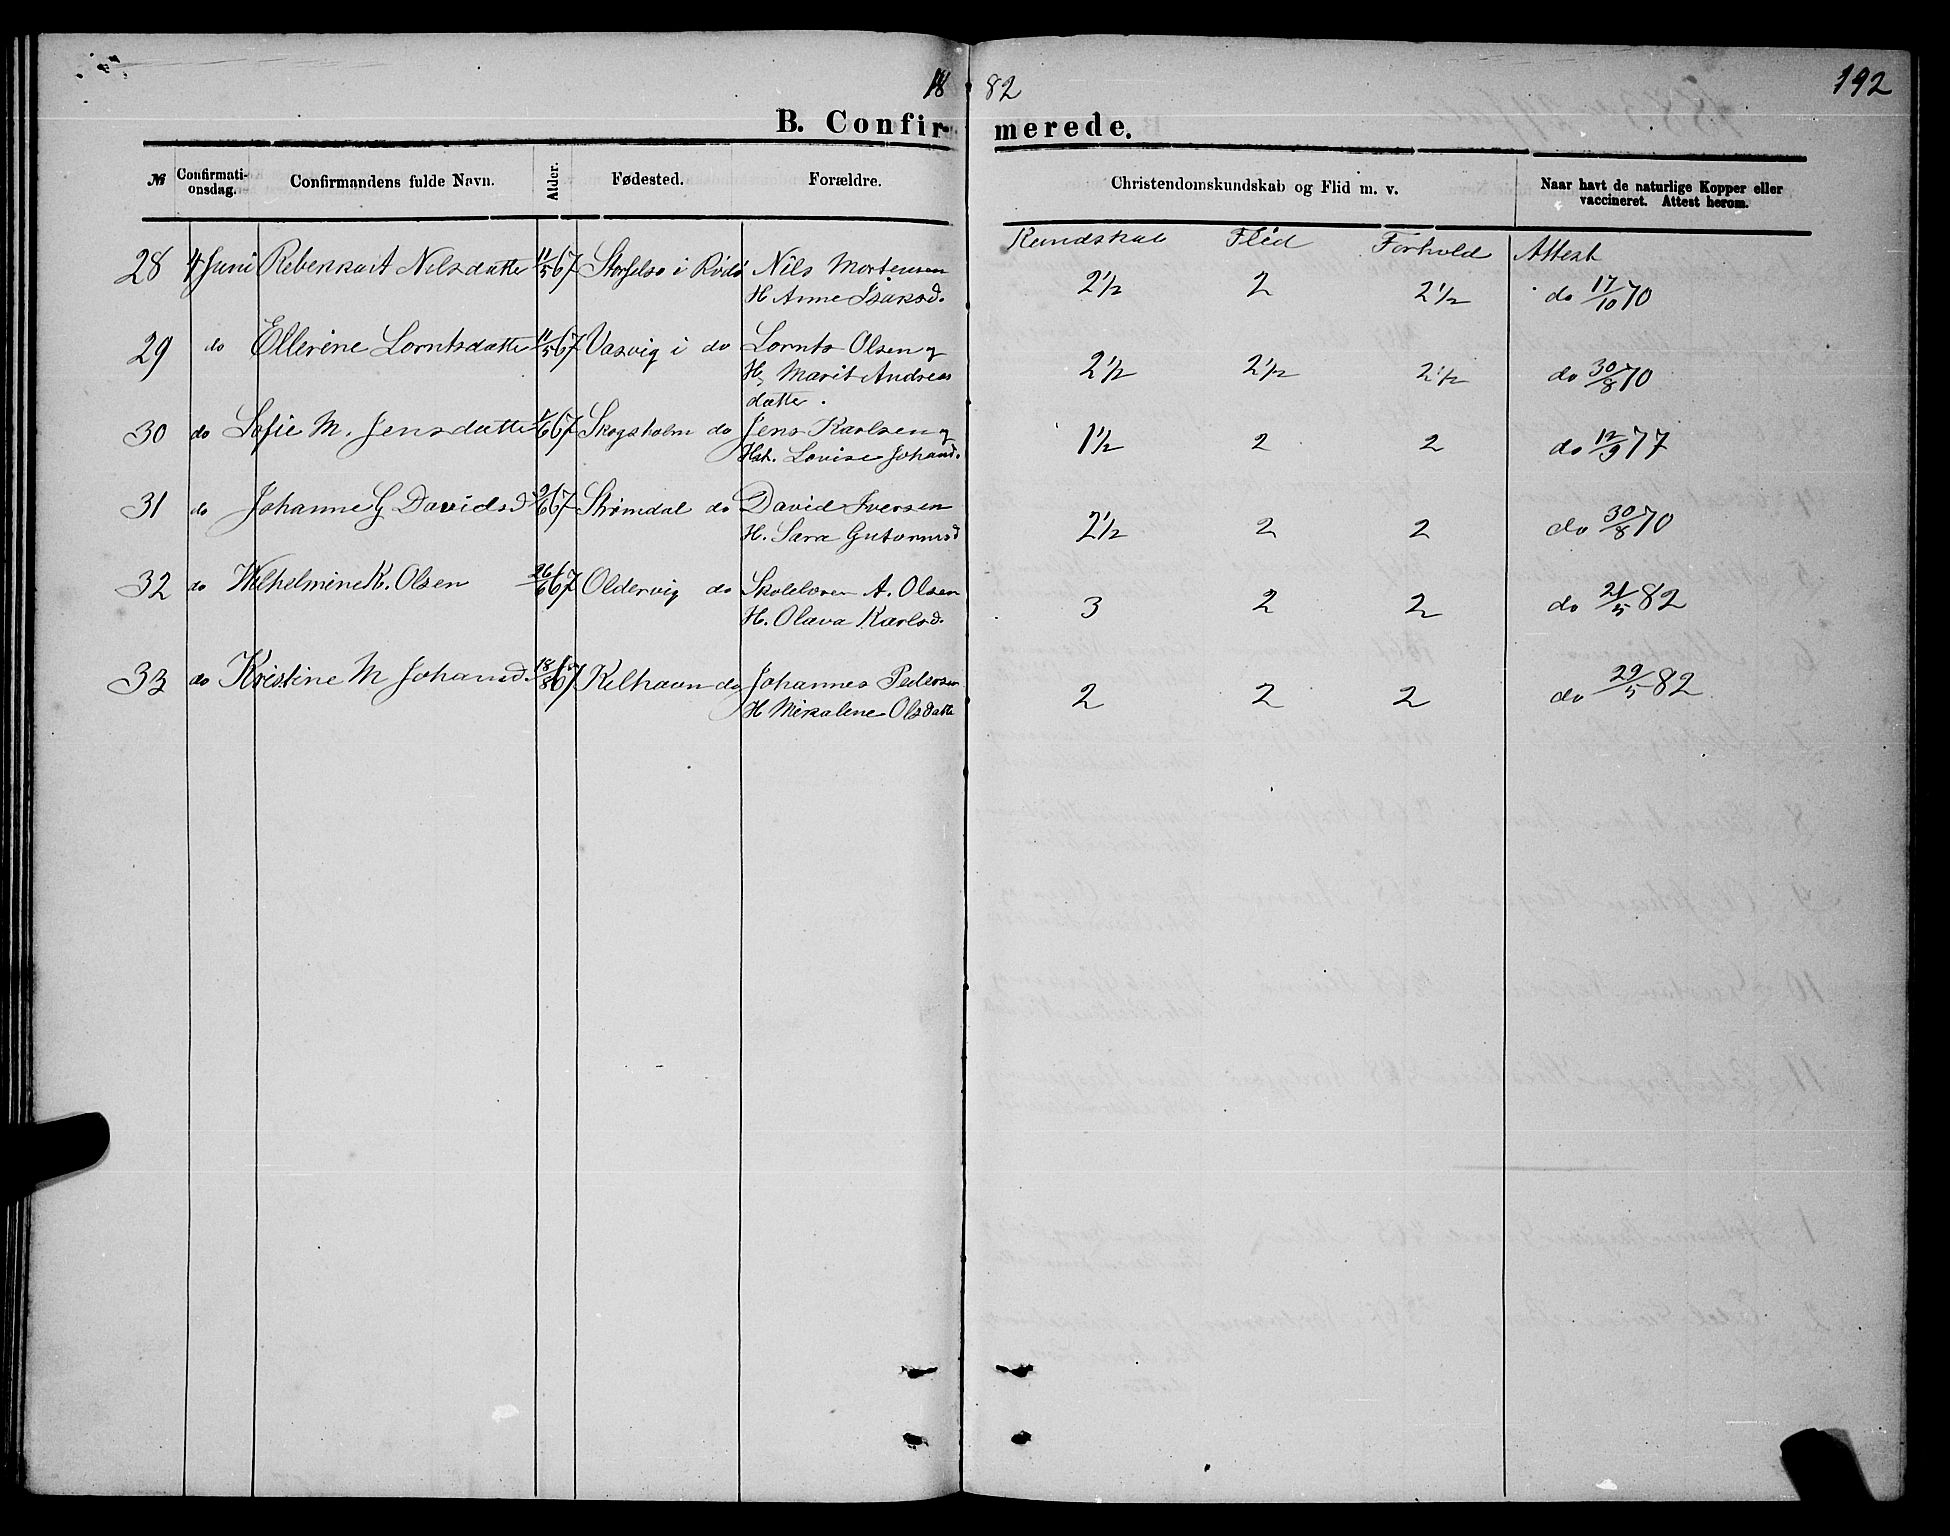 18 82
192
B. Confirmerede.
№ Confirmationsdag. Confirmandens fulde Navn. Alder. Fødested. Forældre. Christendomskundskab og Flid m. v. Naar havt de naturlige Kopper eller vaccineret. Attest herom.
Kundskab Flid Forhold Attest
28 4 Juni Rebekka A Nilsdatter 11/5 67 Storselsø i Rødø Nils Mortensen 2 1/2 2 2 1/2 do 17/10 70
H Anne Isaksd.
29 do Ellerine Lorntsdatte 11/5 67 Vasvig i do Lornts Olsen og 2 1/2 2 1/2 2 1/2 do 30/8 70
H. Marit Andreas
datter.
30 do Sofie M. Jensdatte 1/6 67 Skogsholm do Jens Karlsen og 1 1/2 2 2 do 12/9 77
Hst. Lovise Johand.
31 do Johanne G Davidsd 9/6 67 Strømdal do David Iversen 2 1/2 2 2 do 30/8 70
H. Sara Gutormsd
32 do Wilhelmine K. Olsen 26/6 67 Oldervig do Skolelærer A. Olsen 3 2 2 do 21/5 82
H. Olava Karlsd.
33 do Kristine M Johansd. 18/8 67 Kelhavn do Johannes Pedersen 2 2 2 do 29/5 82
H Mikaline Olsdatte